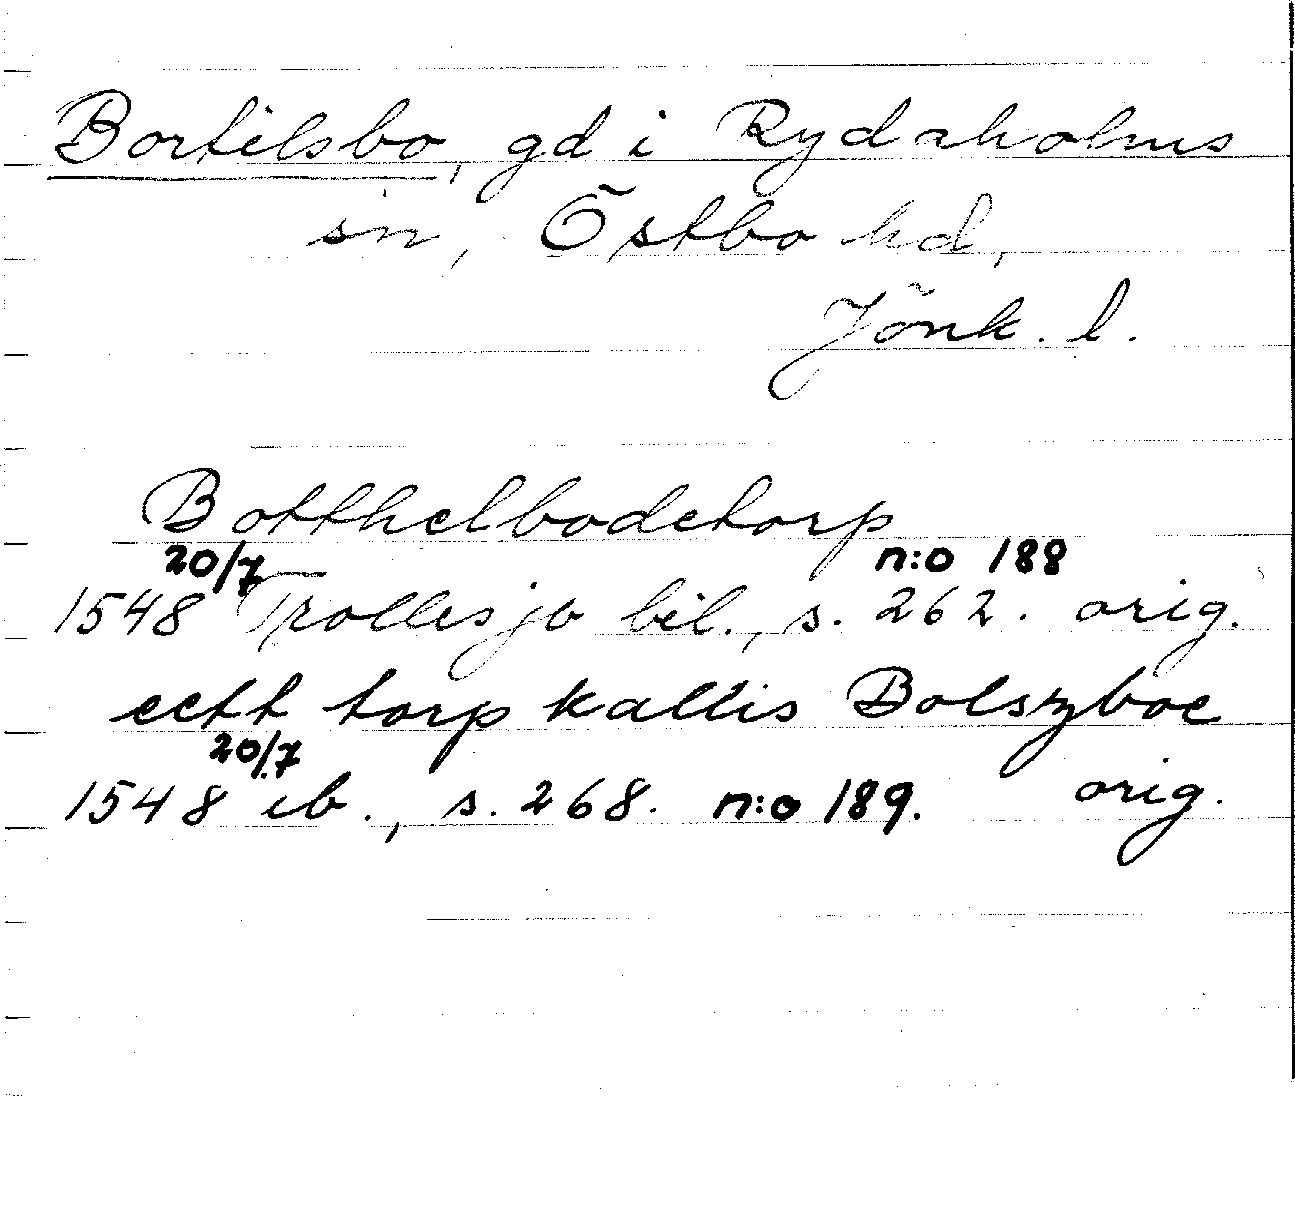 Bortilsbo, gd i Rydaholms
sn, Östbo hd,
Jönk. l.
Botthelbodetorp
20/7 n:o 188
1548 Trollesjö bil., s. 262. orig.
eett torp kallis Bolszboe
20/7
1548 ib., s. 268. n:o 189. orig.